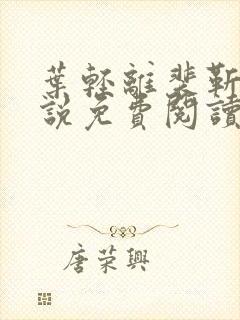 葉輕離裴靳
說免費閱讀
唐荣興